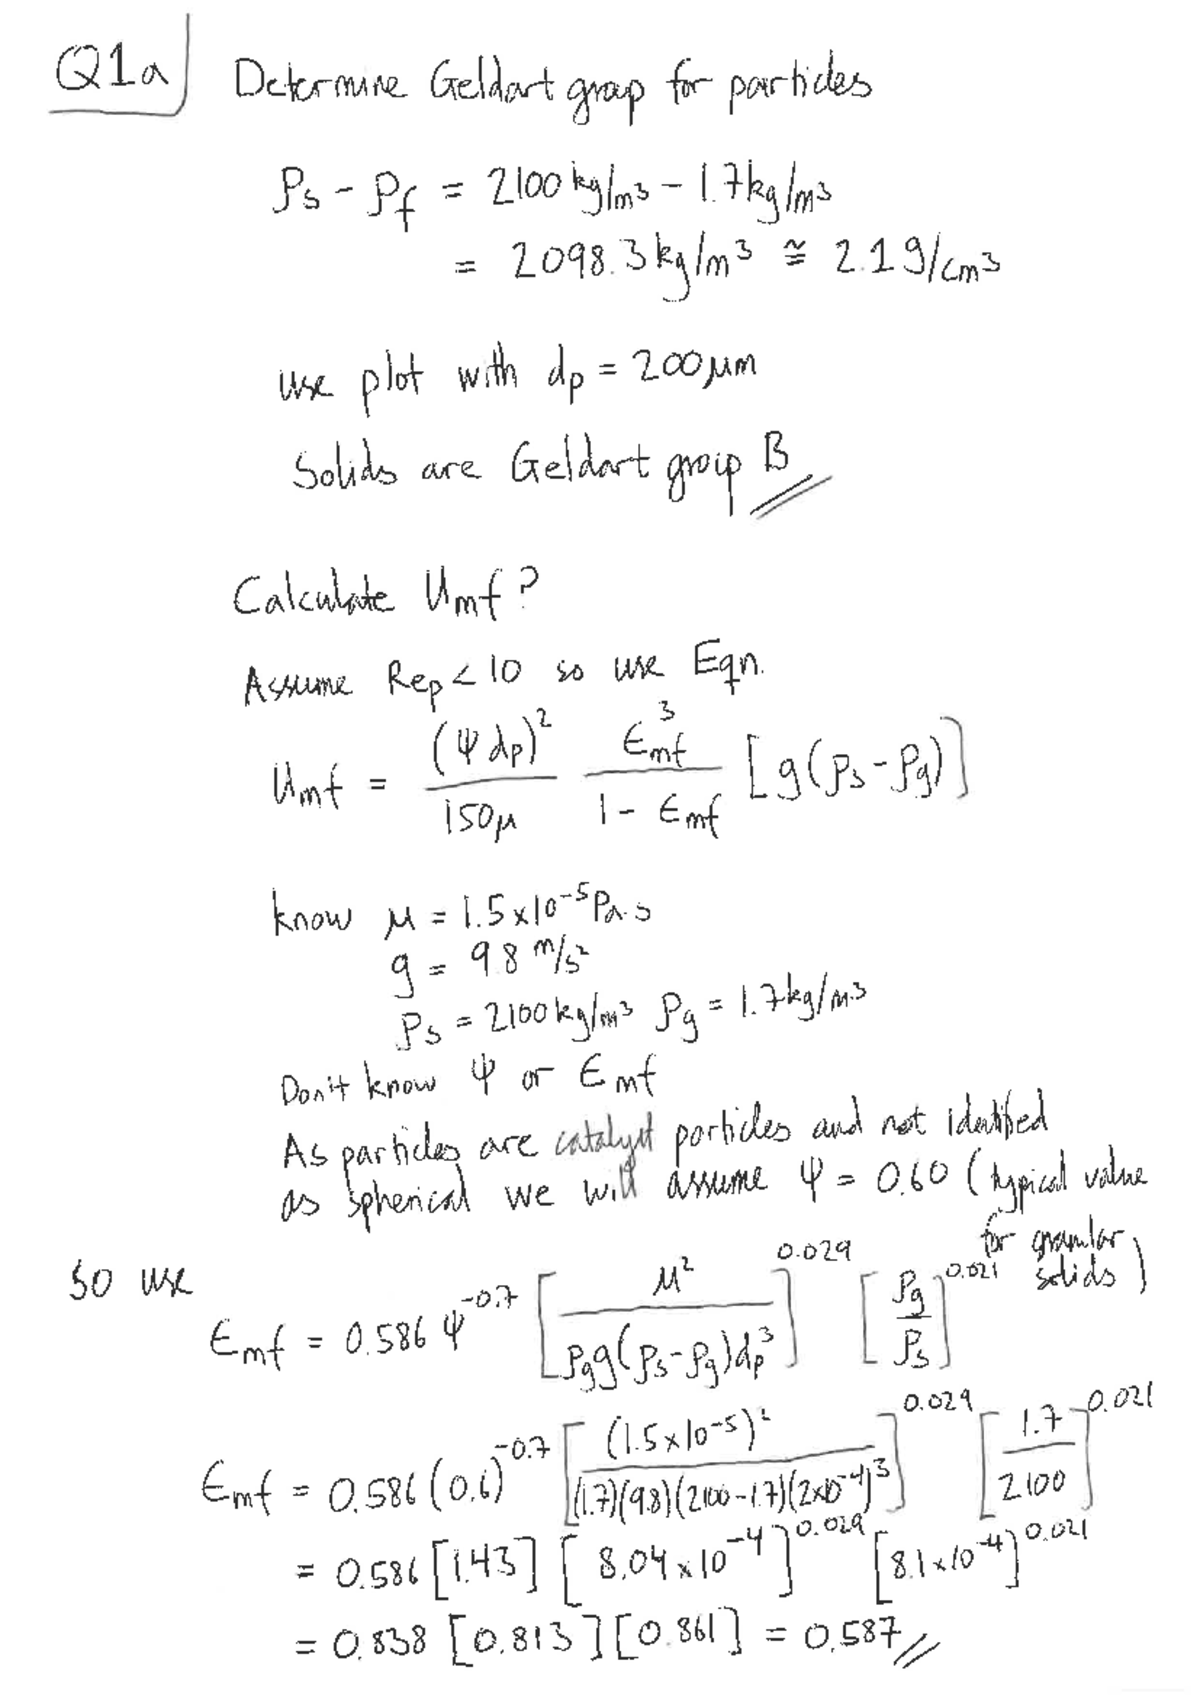 Q1a Determine Geldart group for particles
ρs - ρf = 2100 kg/m3 - 1.7 kg/m3
= 2098.3 kg/m3 ≅ 2.1 g/cm3
use plot with dp = 200μm
Solids are Geldart group B
Calculate Umf?
Assume Rep < 10 so use Eqn.
Umf = (Ψ dp)^2 / 150μ εmf^3 / 1 - εmf [g(ρs - ρg)]
know μ = 1.5 x 10^-5 Pa.s
g = 9.8 m/s^2
ρs = 2100 kg/m3 ρg = 1.7 kg/m3
Don't know Ψ or εmf
As particles are catalyst particles and not identified
as spherical we will assume Ψ = 0.60 (typical value
for granular
solids)
so use
εmf = 0.586 Ψ^-0.7 [μ^2 / ρg g(ρs - ρg)dp^3]^0.029 [ρg / ρs]^0.021
εmf = 0.586 (0.6)^-0.7 [(1.5x10^-5)^2 / (1.7)(9.8)(2100-1.7)(2x10^-4)^3]^0.029 [1.7 / 2100]^0.021
= 0.586 [1.43] [8.04 x 10^-4]^0.029 [8.1 x 10^-4]^0.021
= 0.838 [0.813] [0.861] = 0.587